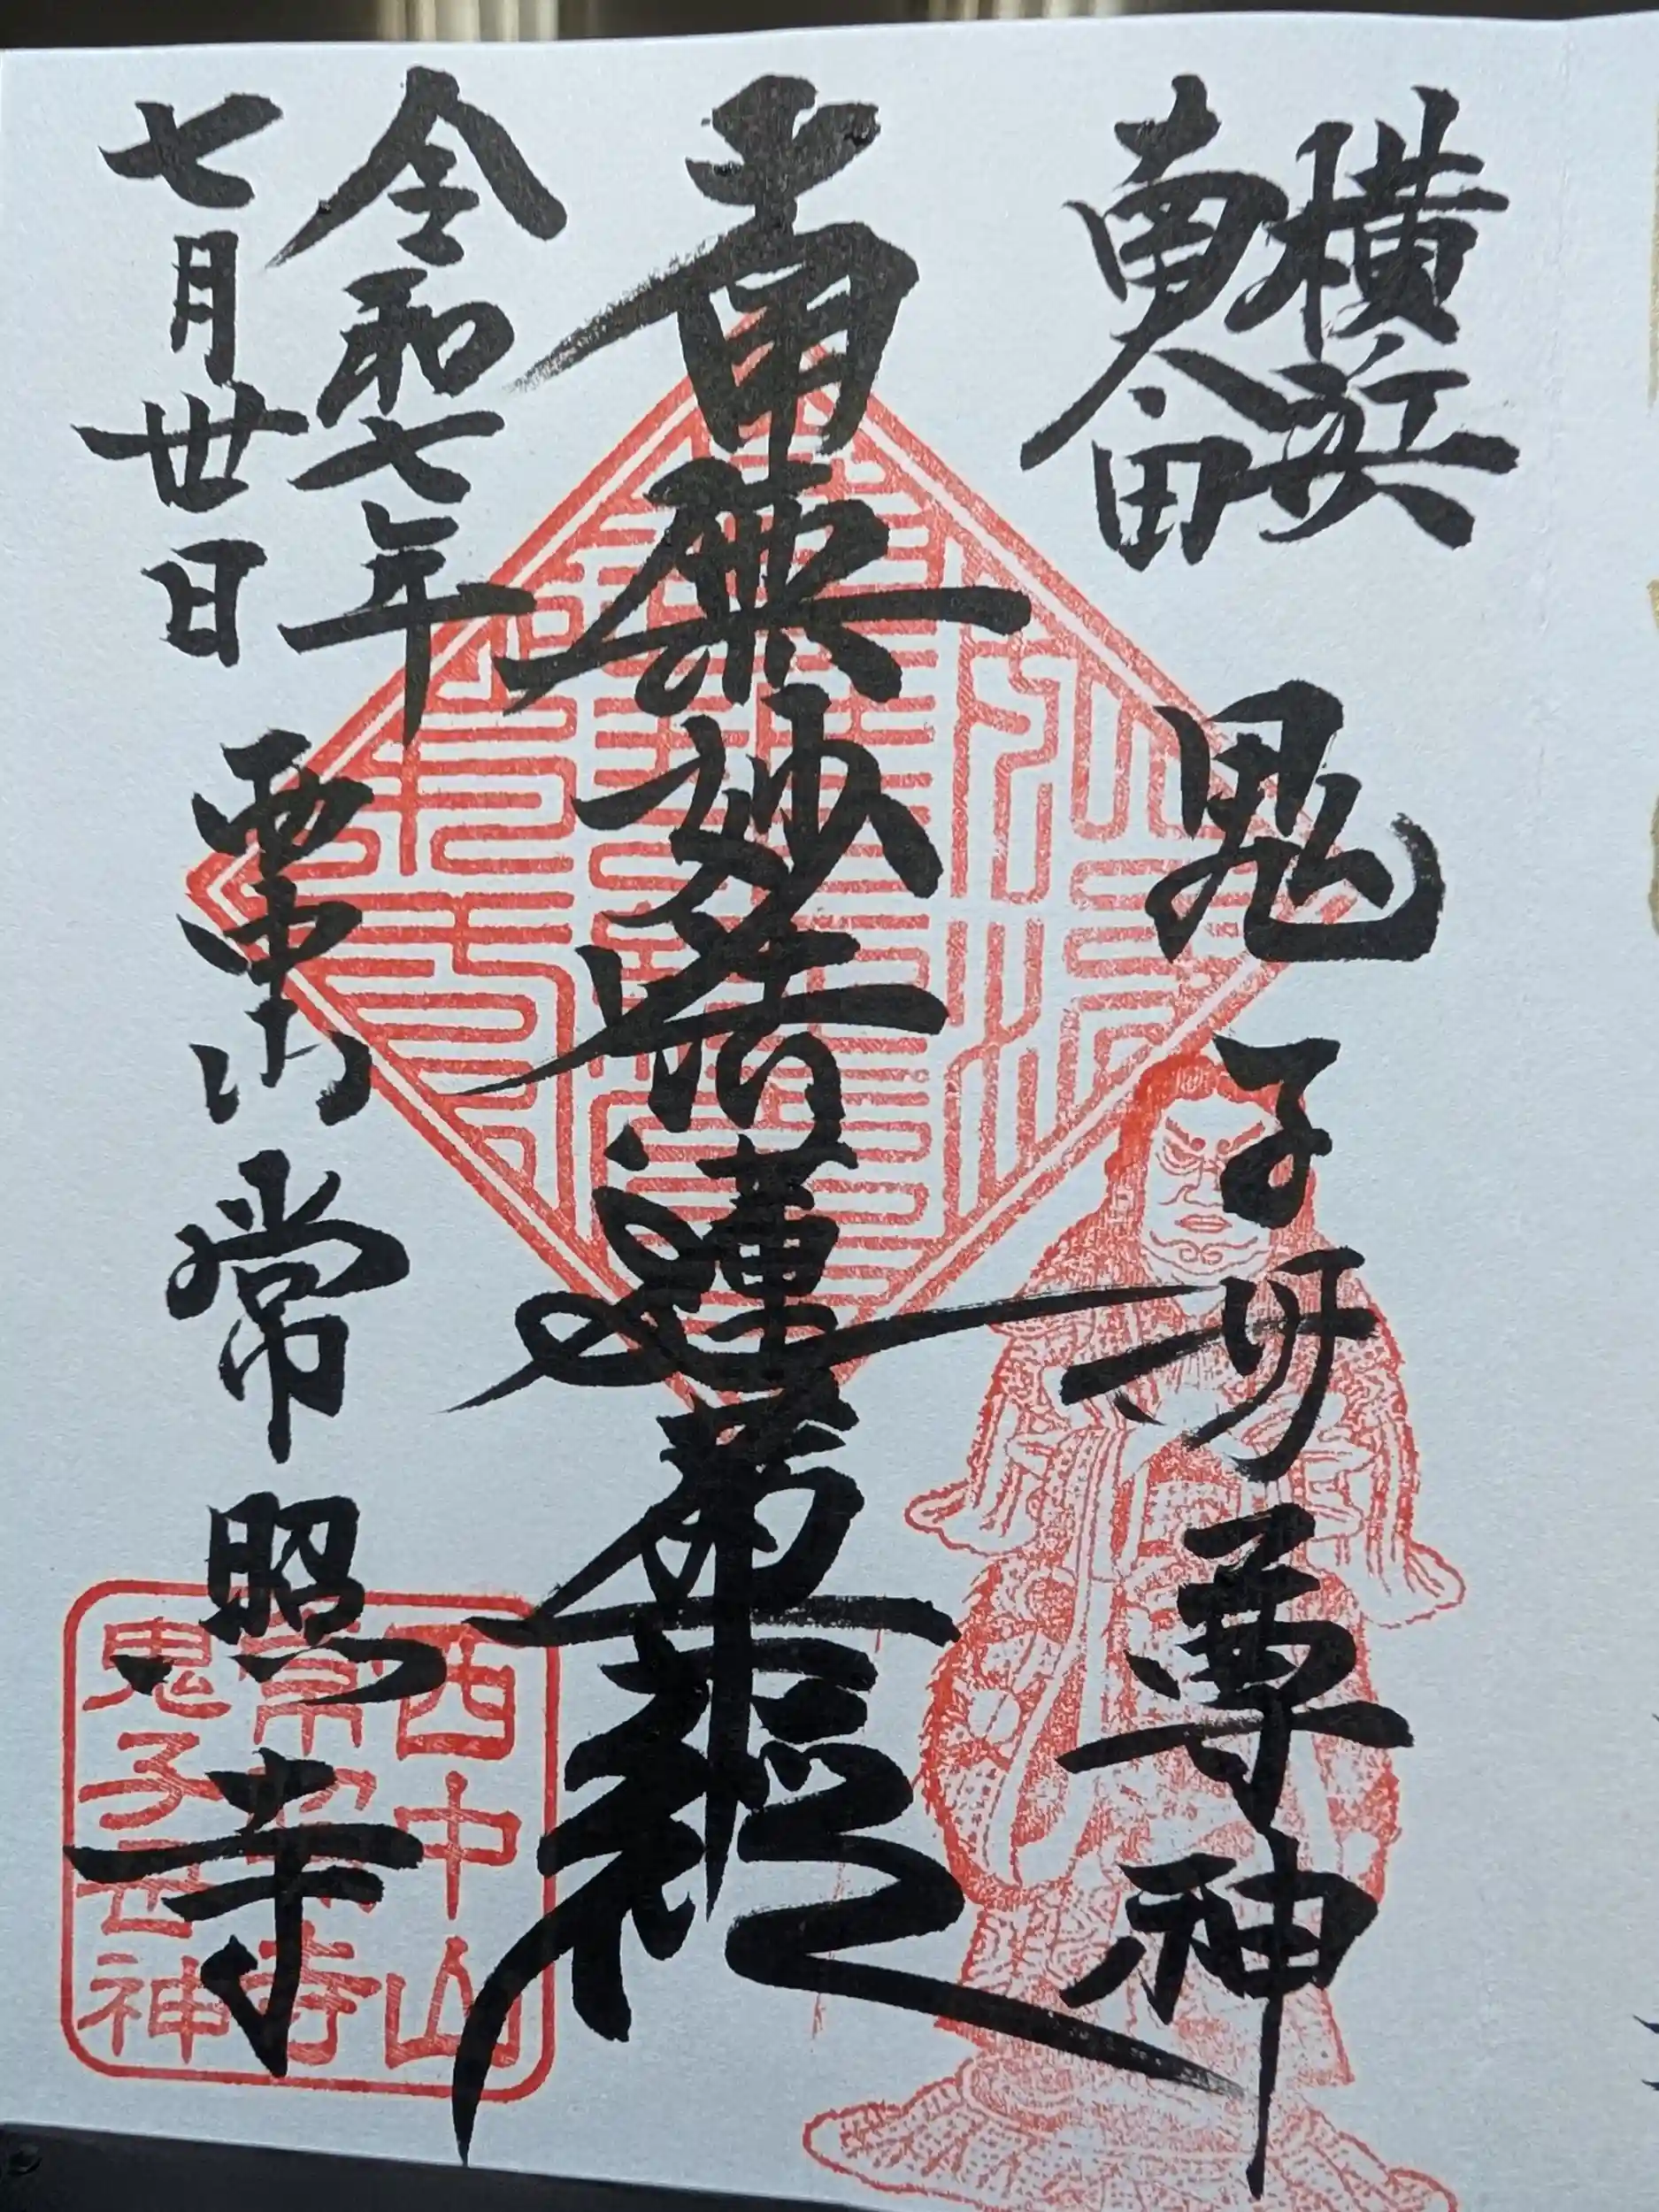 横浜
南太田
鬼子母尊神
南無妙法蓮華経
令和七年
七月丗日
西中山常照寺
西中山
常照寺
鬼子母神